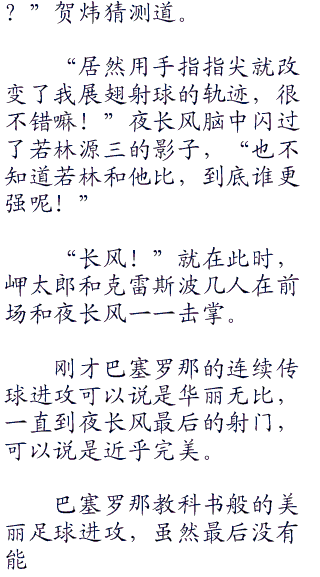 ？”贺炜猜测道。
“居然用手指指尖就改
变了我展翅射球的轨迹，很
不错嘛！”夜长风脑中闪过
了若林源三的影子，“也不
知道若林和他比，到底谁更
强呢！”
“长风！”就在此时，
岬太郎和克雷斯波几人在前
场和夜长风一一击掌。
刚才巴塞罗那的连续传
球进攻可以说是华丽无比，
一直到夜长风最后的射门，
可以说是近乎完美。
巴塞罗那教科书般的美
丽足球进攻，虽然最后没有
能